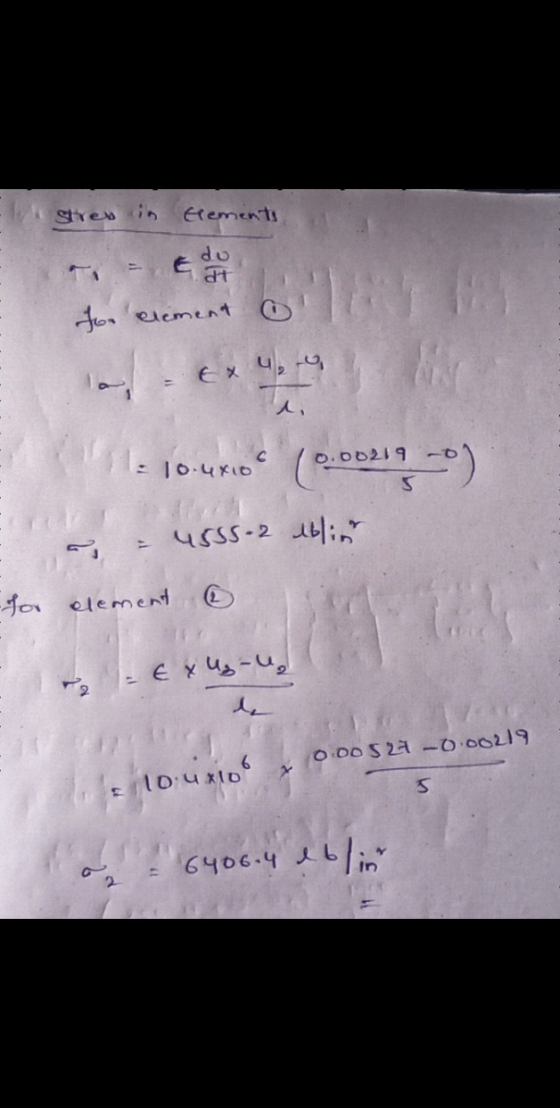 Stress in Elements
σ₁ = E du/dt
for element ①
σ₁ = E × (u₂ - u₁)/l₁
= 10.4×10⁶ (0.00219 - 0 / 5)
σ₁ = 4555.2 lb/in²
for element ②
σ₂ = E × (u₃ - u₂)/l₂
= 10.4×10⁶ × (0.00527 - 0.00219)/5
σ₂ = 6406.4 lb/in²
=